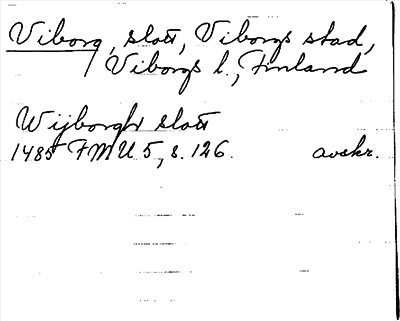 Viborg, slott, Viborgs stad,
/ Viborgs l., Finland
Wijborgh slott
1485 FMU 5, s. 126. avskr.